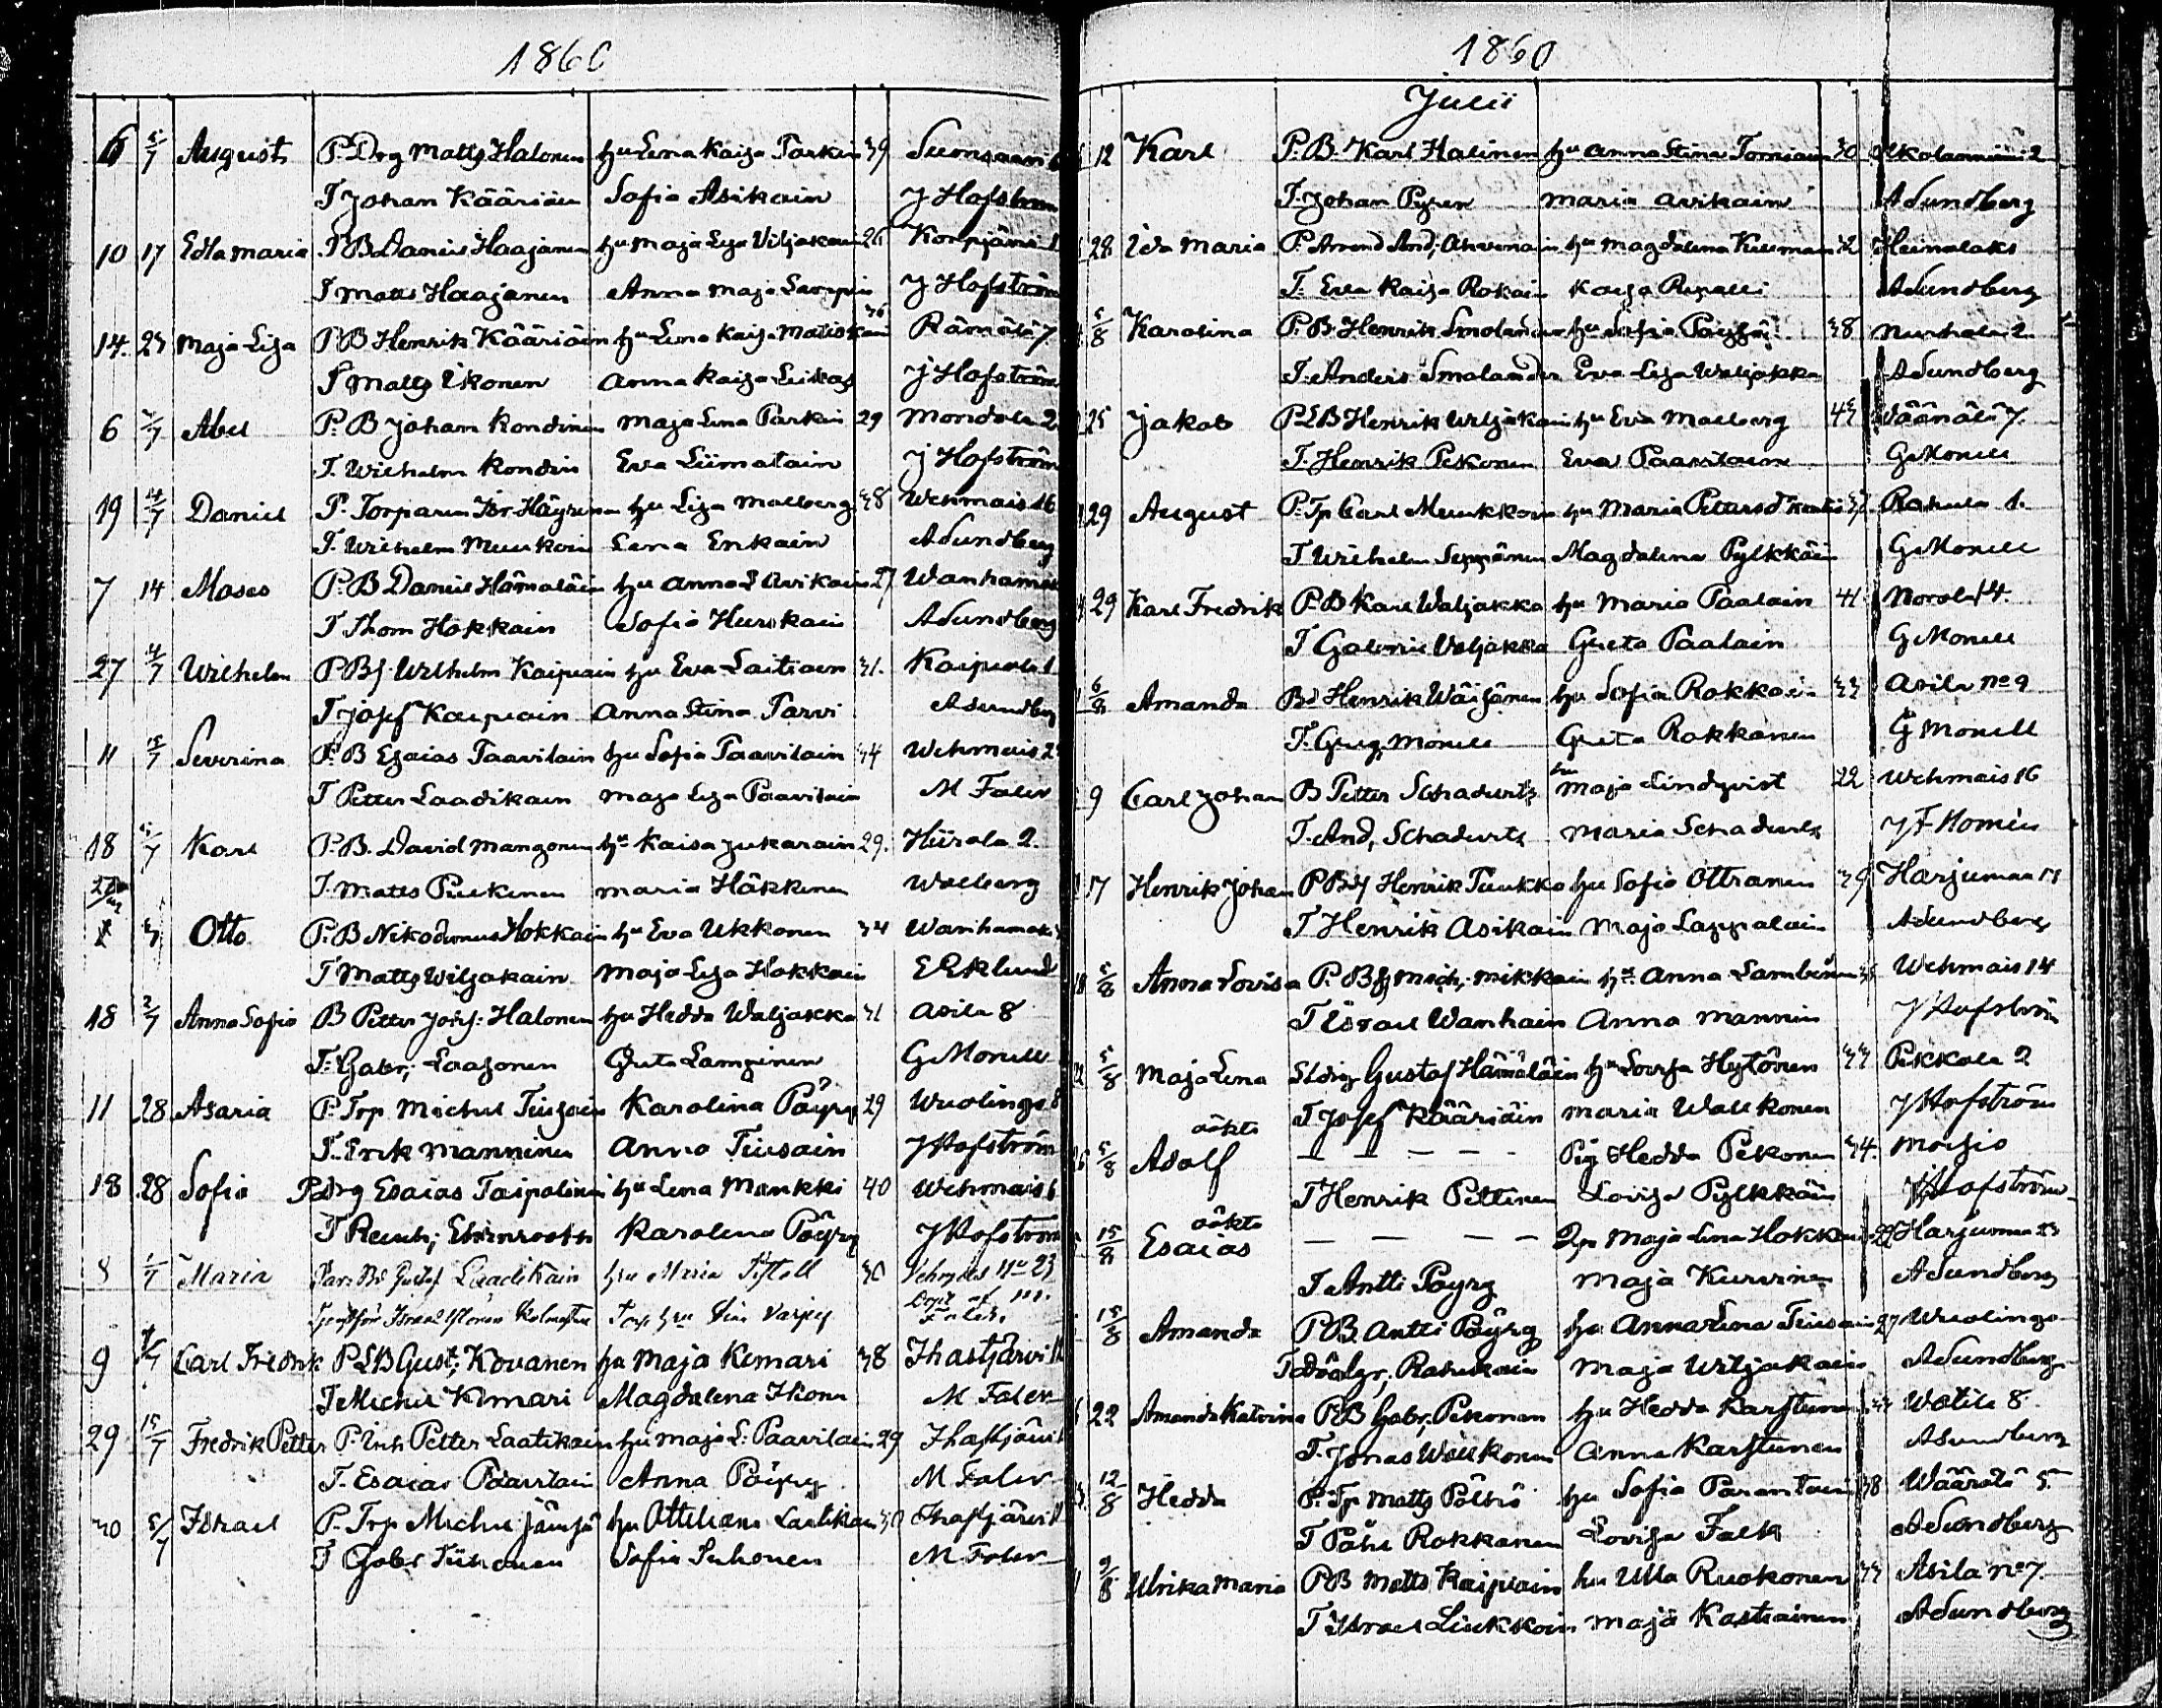 1860
6 5/7 August P. Drg Matts Halonen hu Lena Kaisa Parkin 39 Suonsaari 6
T Johan Kääriäin Sofia Asikain J Hofström
10 17 Edla Maria P B Daniel Haajanen hu Maja Lisa Viljakain 26 Konnjärvi 1
T Matts Haajanen Anna Maja J Hofström
14. 23 Maja Lisa P B Henrik Kääriäin hu Lena Kaisa Matiskain 36 Rämälä 7
T Matts Ikonen Anna Kaisa Leikas J Hofström
6 /7 Abel P. B Johan Kondinen Maja Lena Parkin 29 Mondola 2
T. Wilhelm Kondin Eva Liimatain J Hofström
19 /7 Daniel P. Torparen Isr. Häyrinen hu Lisa Malberg 38 Wehmais 16
T. Wilhelm Muukoin Lena Enkain A Sundberg
7 14 Moses P. B Daniel Hämäläin hu Anna L Avikain 27 Wanhamäk
T Thom Hokkain Sofia Hurskain A Sundberg
27 /7 Wilhelm P Bs. Wilhelm Kaipiain hu Eva Laitiain 31. Kaipiala 1
T Josef Kaipiain Anna Stina Parvi A Sundberg
11 15/7 Severina P. B Esaias Paavilain hu Sofia Paavilain 44 Wehmais 2
T Petter Laadikain Maja Lisa Paavilain M Faler
18 /7 Karl P. B. David Mangonen hu Kaisa Jukarain 29. Hiirola 2.
T. Matts Puckinen Maria Häkkinen Walberg
Otto P. B Nikodemus Hokkain hu Eva Ukkonen 34 Wanhamäki
T Matts Wiljakain Maja Lisa Hokkain E Eklund
18 2/7 Anna Sofia B Petter Josef: Halonen hu Hedda Waljakka 31 Asila 8
T. Gabr; Laasonen Greta Lampinen G Monell
11 28 Asaria P. Trp. Michel Tiusain Karolina Pöyry 29 Wuolingo 8
T. Erik Manninen Anna Tiusain J Hofström
18 28 Sofia P. Drg Esaias Taipalinen hu Lena Mankki 40 Wehmais 6
T Reinh; Ehrnrooth Karolina Pöyry J Hofström
8 1/7 Maria Bd Gustaf Laadikain hu Maria Pistoll 30 Vehmais No 23
Israel Dopt af M. Faler.
9 /7 Carl Fredrik P LB Gust; Kovanen hu Maja Kemari 38 Ihastjärvi
T Michel Kemari Magdalena Hiona M Faler
29 15/7 Fredrik Petter P. Inh Petter Laatikain hu Maja L: Paavilain 29 Ihastjärvi
T. Esaias Paavilain Anna Pöyry M Faler
30 5/7 Israel P. Trp Michel Jämsä hu Ottiliana Laatikain 30 Ihastjärvi
T Gabr Tiihonen Sofia Tiihonen M Faler
1860
Julii
12 Karl P. B. Karl Halinen hu Anna Stina Torniain 30 Ukolanniemi 2
T. Johan Pynnen Maria Avikain A Sundberg
28 Ida Maria P. Arrend And; Ahvenain hu Magdalena Kiisman 32 Heimalaks
T. Eva Kaisa Rokain Kaisa Ripatti A Sundberg
5/8 Karolina P. B. Henrik Smolander hu Sofia Pöyhö 38 Nurhola 2.
T. Anders Smolander Eva Lisa Waljakka A Sundberg
25 Jakob P LB Henrik Wiljakain hu Eva Malberg 43 Väänälä 7.
T. Henrik Pekonen Eva Paavilain G Monell
29 August P. Tp Carl Muukkoin hu Maria Pettersd 32. Rahula 1.
T Wilhelm Seppänen Magdalena Pylkkäin G Monell
29 Karl Fredrik P. B Karl Waljakka hu Maria Paalain 41 Norola 14.
T Gabriel Valjakka Greta Paalain G Monell
6/8 Amanda Bd Henrik Wäisänen hu Sofia Rokkain 33 Asila No 9
T. Greg. Monell Greta Rokkanen G Monell
9 Carl Johan B Petter Schadurtz hu Maja Lindqvist 22 Wehmais 16
T. And, Schadurtz Maria Schadurtz J F Homén
17 Henrik Johan P Bs Henrik Tuukka hu Sofia Ottranen 39 Harjumaa 15
T Henrik Asikain Maja Lappalain A Sundberg
5/8 Anna Lovisa P. Bs Mich; Mikkain hu Anna Lambinen 36 Wehmais 14
T Israel Wanhain Anna Mannin J Hofström
5/8 Maja Lena Sldrg Gustaf Hämäläin hu Lovisa Hytönen 33 Pekkola 2
T Josef Kääriäin Maria Walkonen J Hofström
oäkta
5/8 Adolf — — — — Pig Hedda Pekonen 34. Moisio
T Henrik Peltinen Lovisa Pylkkäin J Hofström
oäkta
15/8 Esaias — — — — Maja Lena Hokkain 22 Harjumaa 23
T Antti Pöyry Maja Kurvinen A Sundberg
15/8 Amanda P B. Antti Pöyry hu Anna Lena Tiusain 27 Wuolingo
T Rahikain Maja Wiljakain A Sundberg
22 Amanda Katrina P B Gabr; Pekonen hu Hedda Karstunen 33 Watila 8.
T. Jonas Walkonen Anna Karstunen A Sundberg
12/8 Hedda P. Tp Matts Pöllö hu Sofia Parantain 38 Wäärälä 5.
T Påhl Rokkanen Lovisa Falk A Sundberg
9/8 Ulrika Maria P B Matts Kaipiain hu Ulla Ruokonen 33 Asila No 7.
T Israel Liukkoin Maja Kastiainen A Sundberg